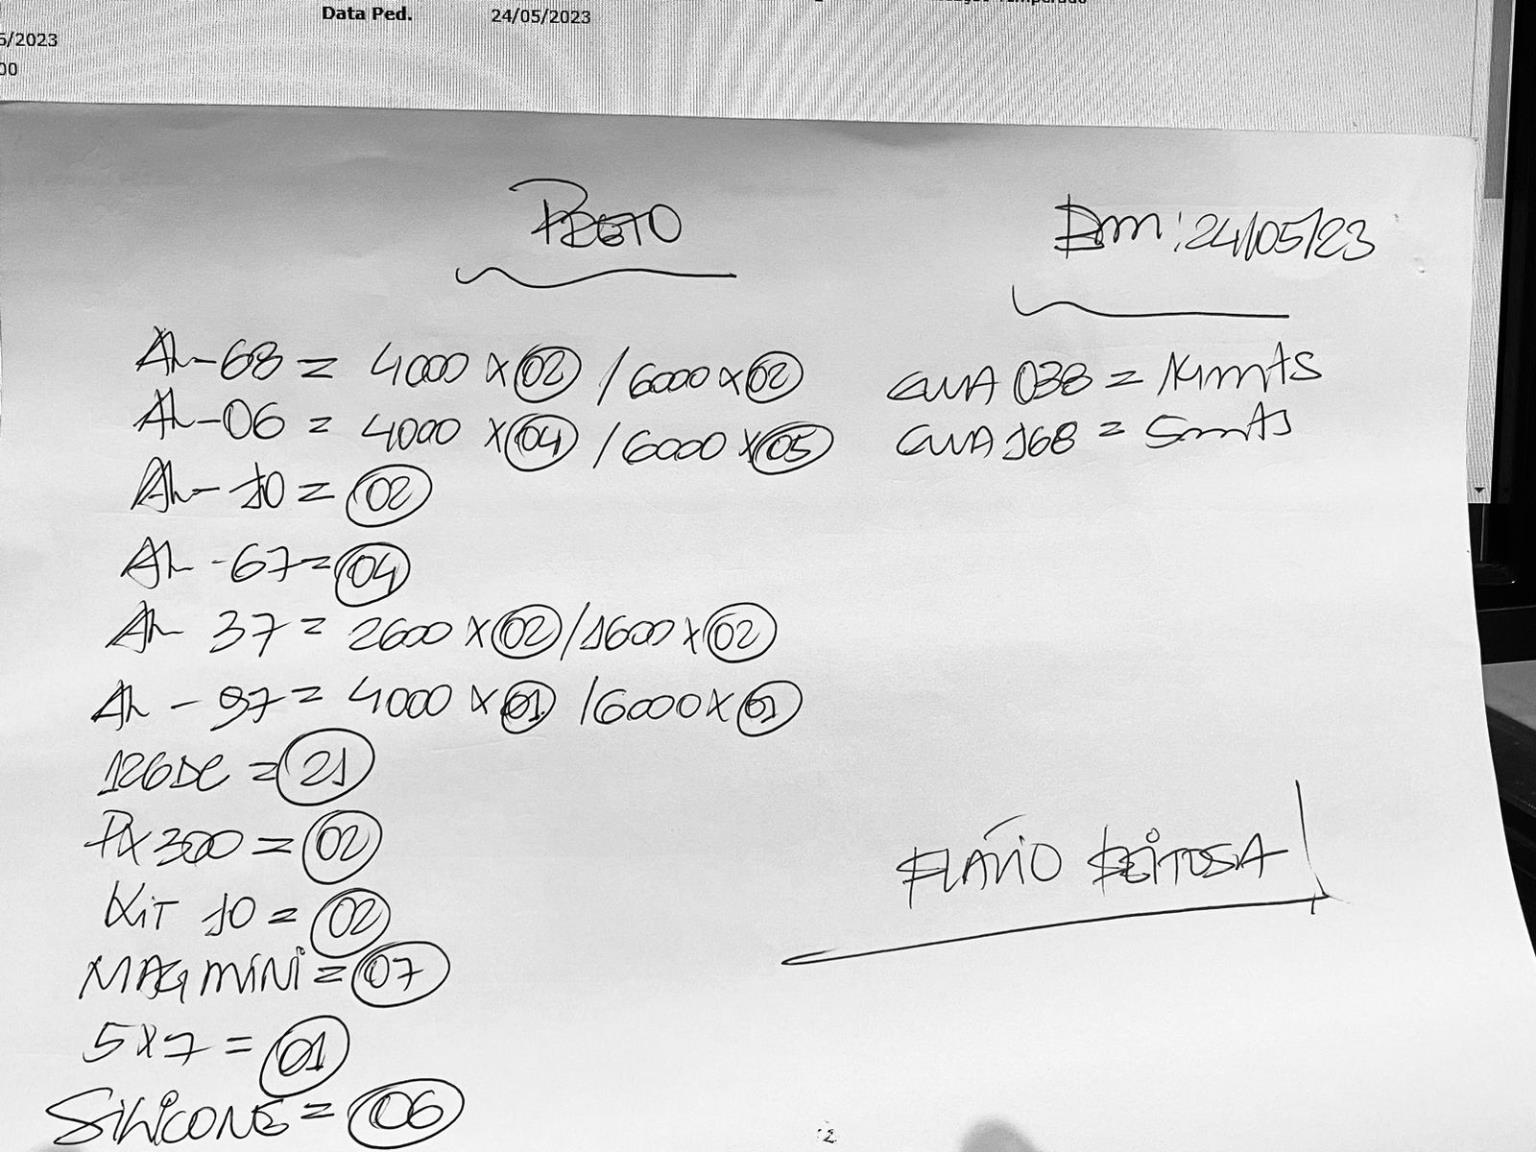 Data Ped. 24/05/2023
5/2023
00
PRETO
Em: 24/05/23
AL-68 = 4000 x 02 / 6000 x 02
AL-06 = 4000 x 04 / 6000 x 05
AL-10 = 02
AL-67 = 04
AL-37 = 2600 x 02 / 1600 x 02
AL-97 = 4000 x 01 / 6000 x 01
126DC = 21
PX300 = 02
KiT 10 = 02
MAG MiNi = 07
5x7 = 01
SiLiCONE = 06
038 =
168 = 5mts
FLÁViO FEiTOSA